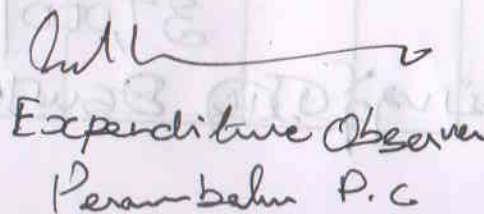 Expenditure Observer
Perambalur P.C